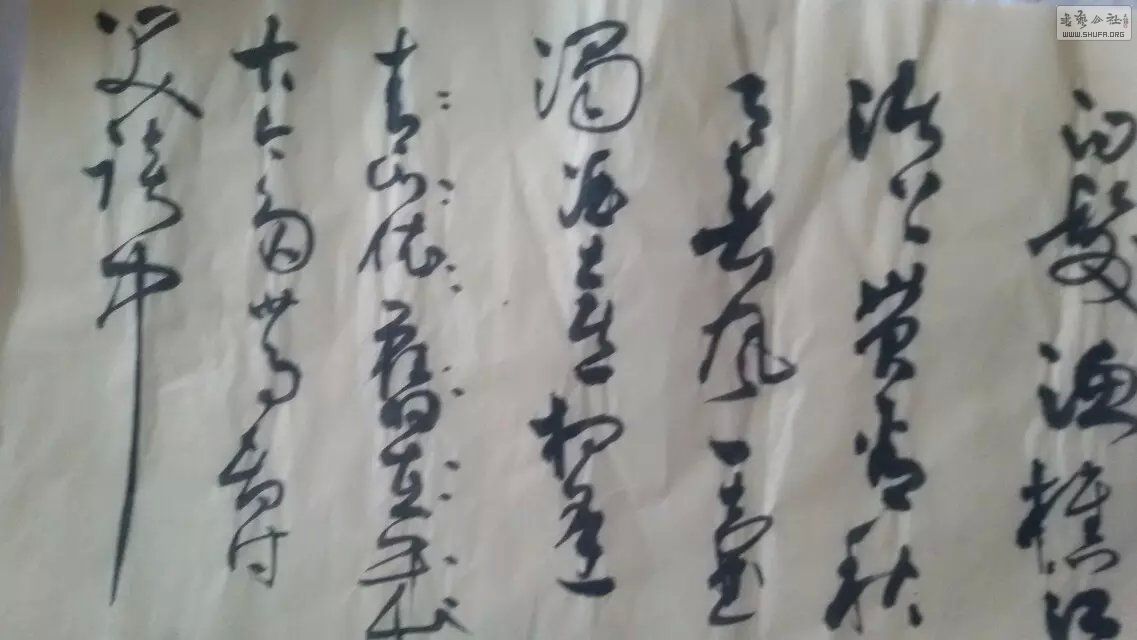 白髮漁樵江
渚上慣看秋
月春風一壺
濁酒喜相逢
青山依舊在
古今多少事都付
笑談中
書藝公社
WWW.SHUFA.ORG